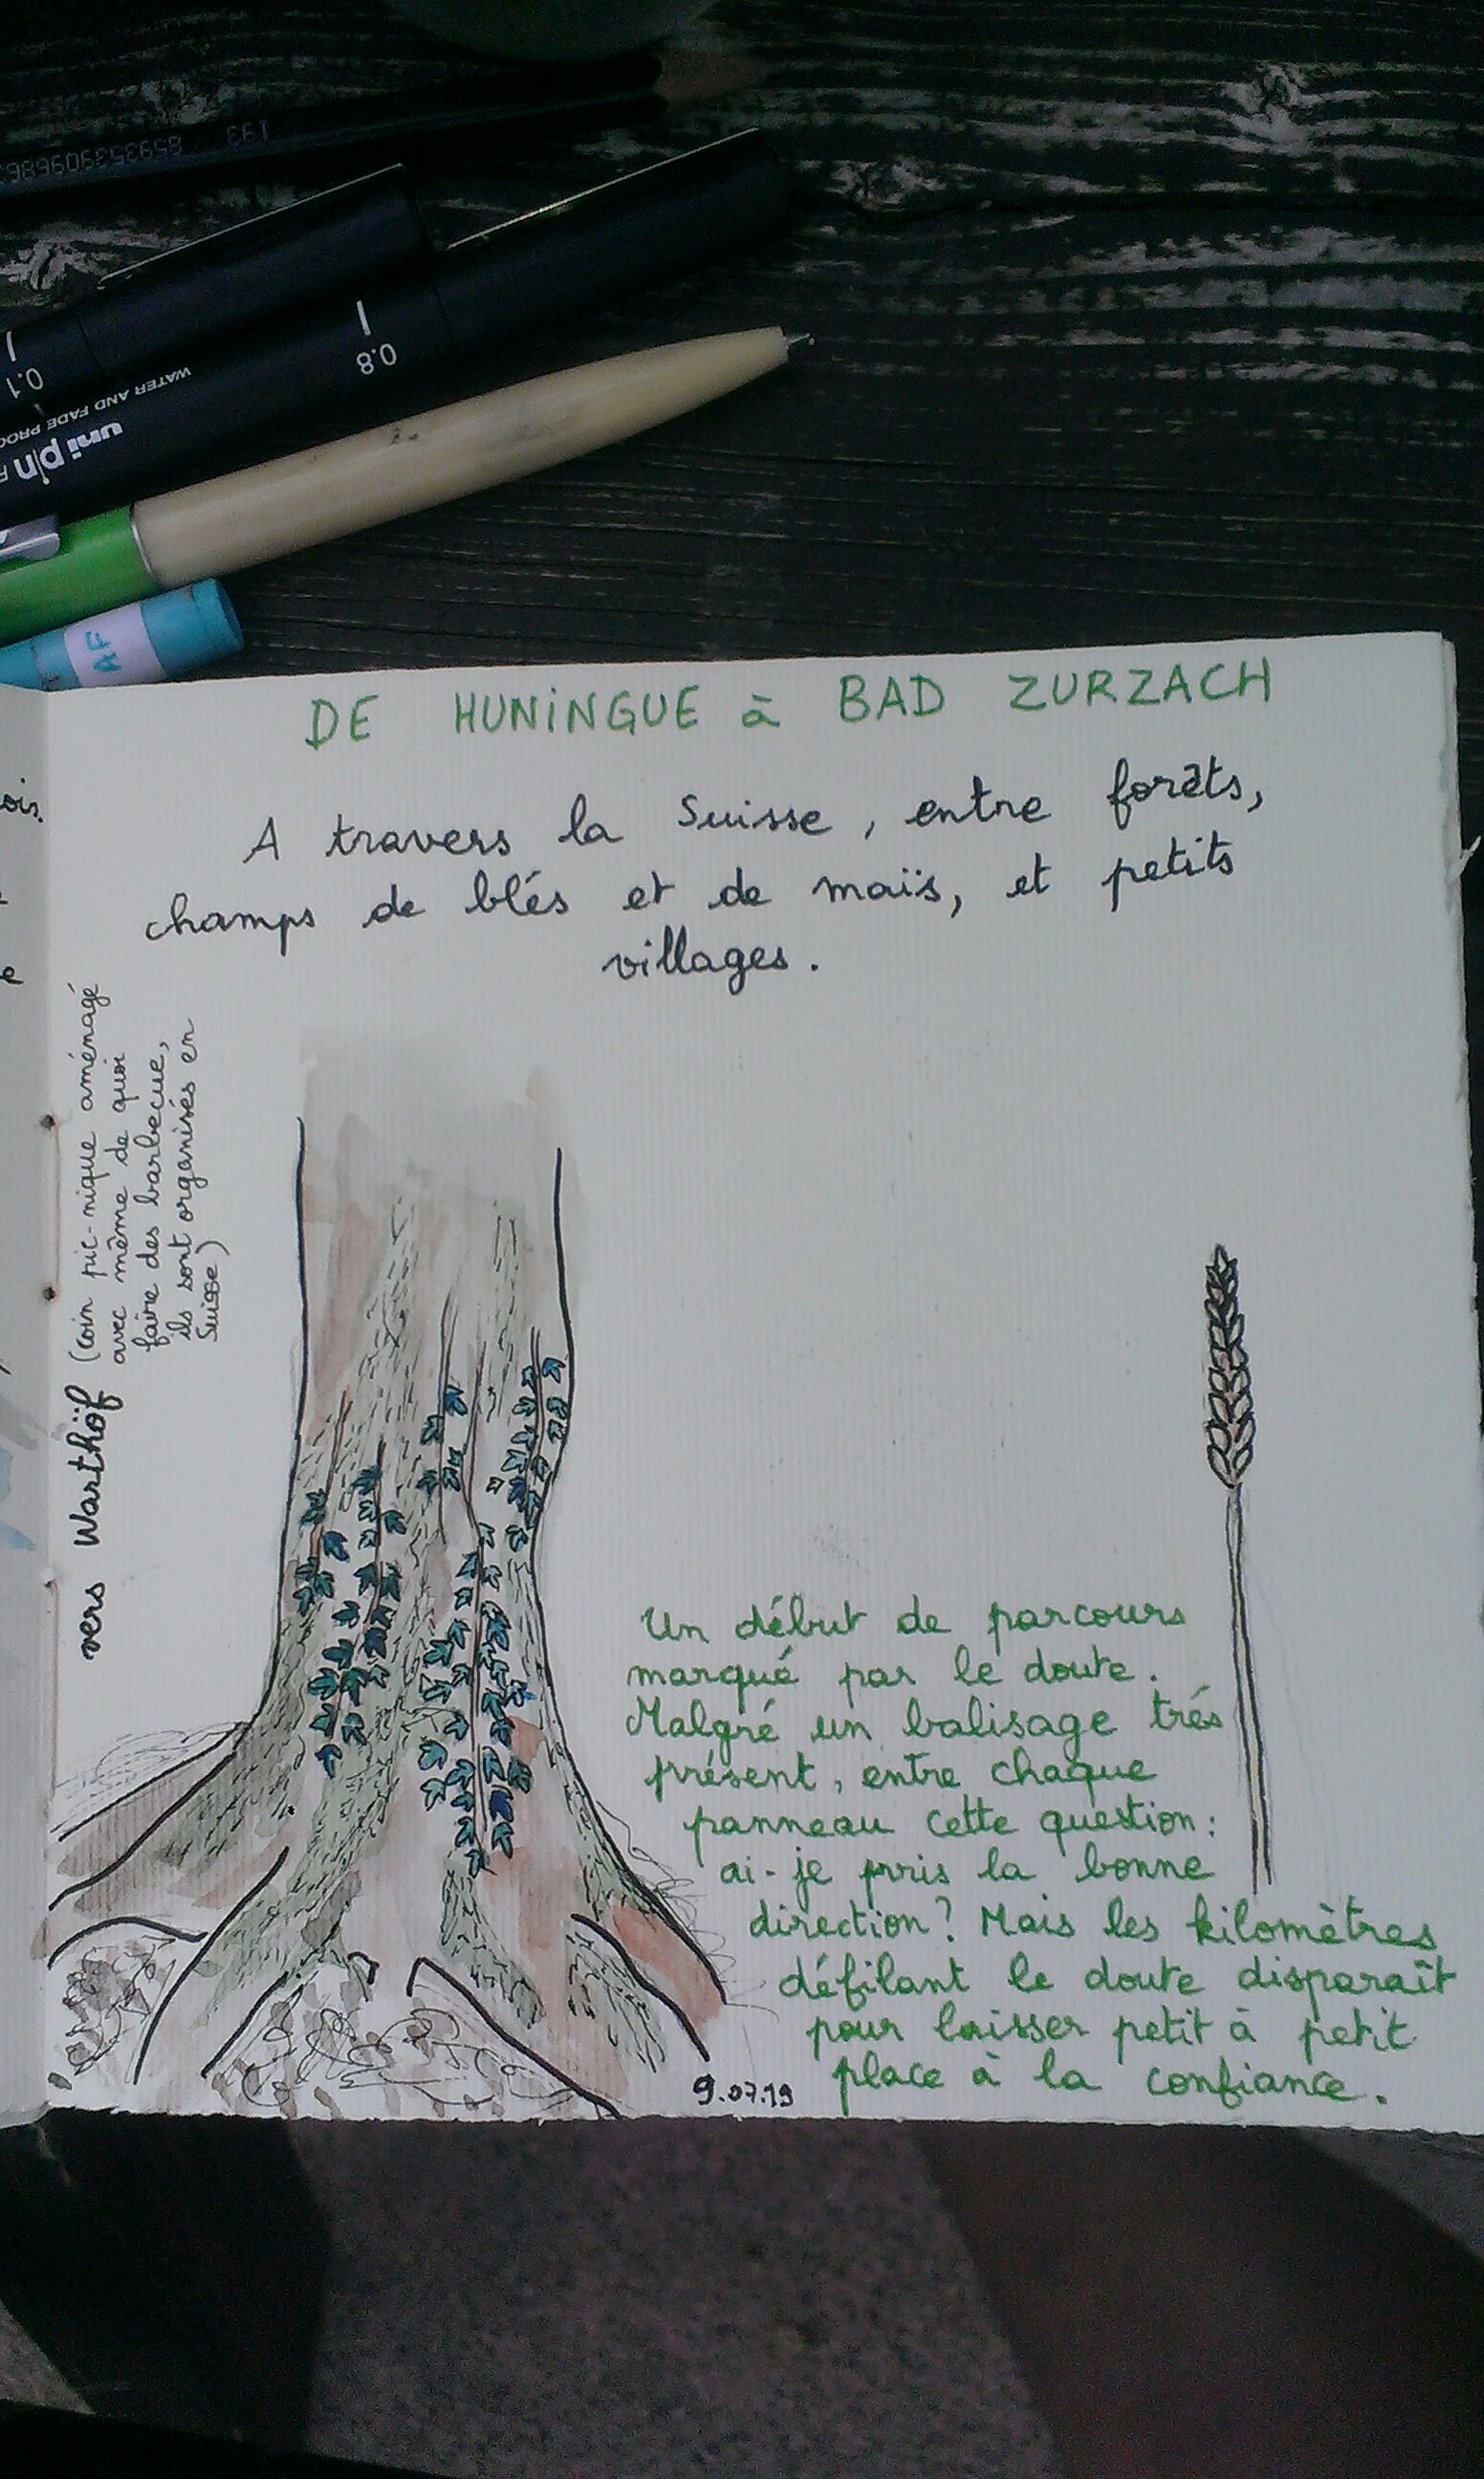 193
8593539096863
0.1
0.8
WATER AND FADE PROO
uni pin
AF
DE HUNiNGUE à BAD ZURZACH
A travers la Suisse, entre forêts,
champs de blés et de maïs, et petits
villages.
ois.
e
vers Warthöf (coin pic-nique aménagé
avec même de quoi
faire des barbecue,
ils sont organisés en
Suisse)
Un début de parcours
marqué par le doute.
Malgré un balisage trés
présent, entre chaque
panneau cette question:
ai-je pris la bonne
direction? Mais les kilomètres
défilant le doute disparaît
pour laisser petit à petit
place à la confiance.
9.07.19